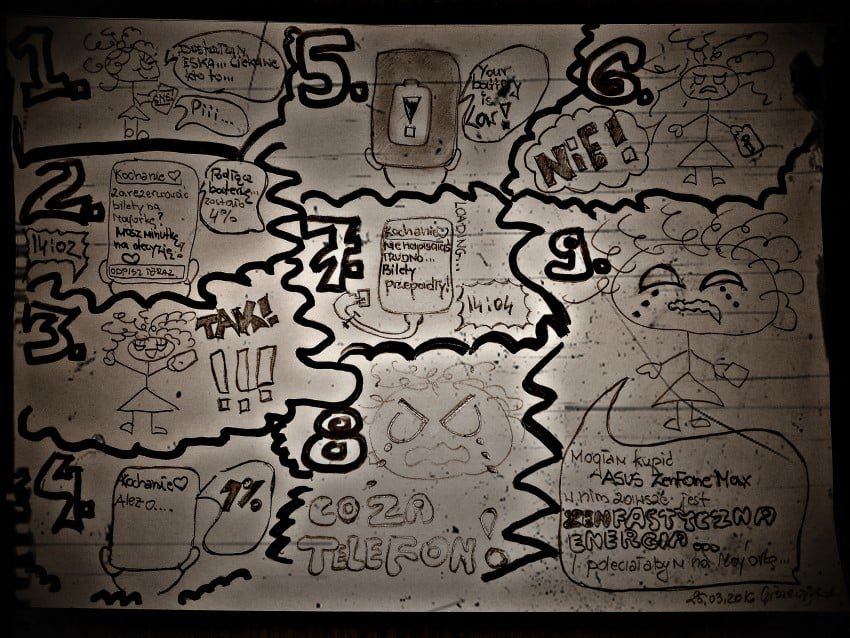 1.
Dostałam
ESKA... Ciekawe
kto to...
Piii...
2.
Kochanie ♡
zarezerwować
bilety na
Majorkę?
Masz minutkę
na decyzję!
♡
ODPISZ TERAZ
Podłącz
baterię...
zostało
4%
14:02
3.
TAK!
!!!
4.
Kochanie ♡
Ale2 0...
1%
5.
Your
battery
is
Low!
6.
NIE!
7.
LOADING...
Kochanie ♡
NIE napisałaś
TRUDNO...
Bilety
przepadły!
14:04
8
CO ZA
TELEFON!
9.
Mogłam kupić
ASUS ZenFone Max
w nim zawsze jest
ZENFASTYCZNA
ENERGIA ooo
I poleciałabym na Majorkę...
25.03.2016